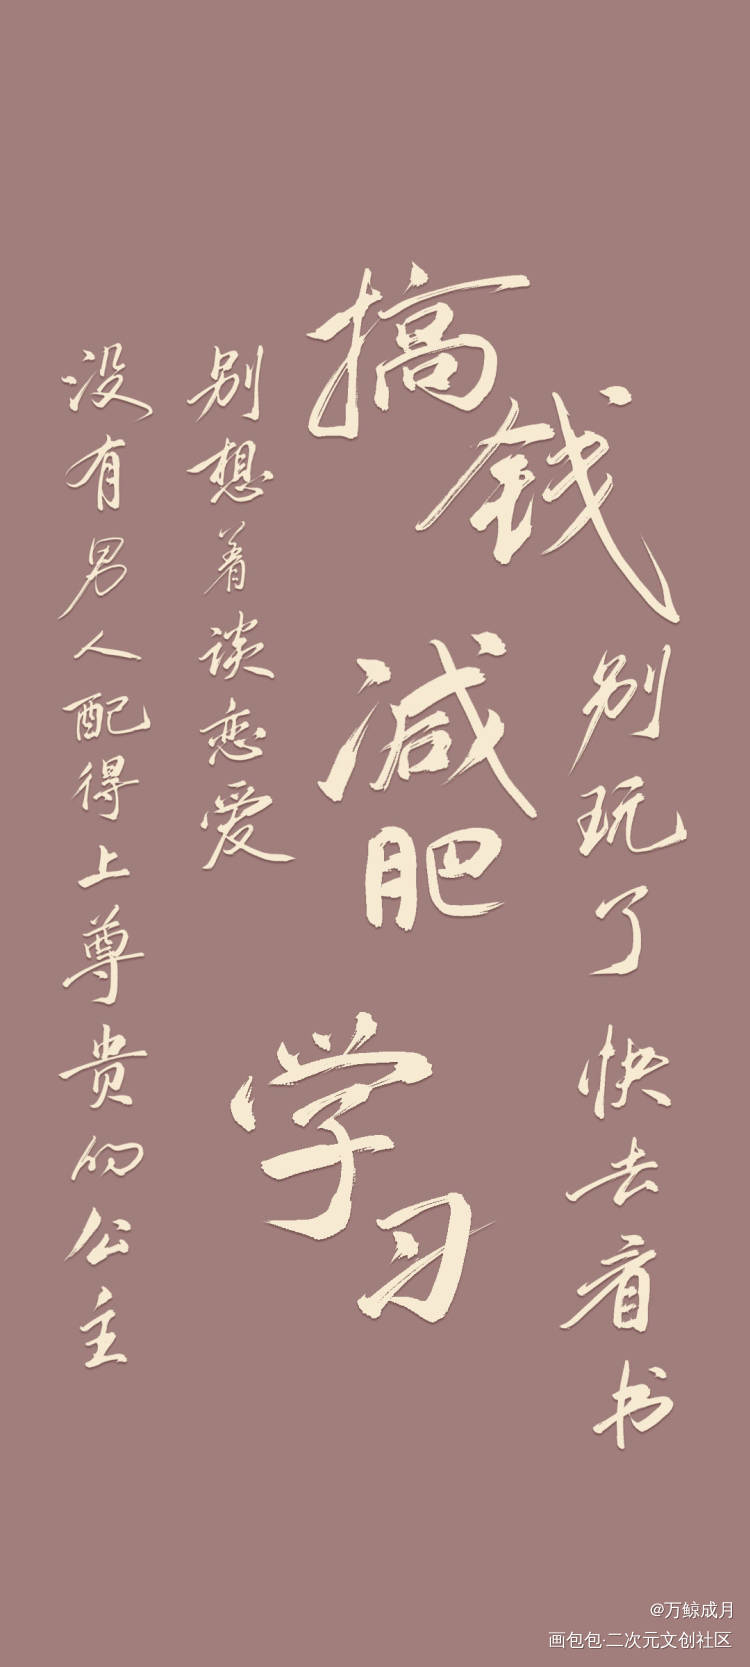 搞钱
减肥
学习
别玩了 快去看书
别想着谈恋爱
没有男人配得上尊贵的公主
@万鲸成月
画包包·二次元文创社区